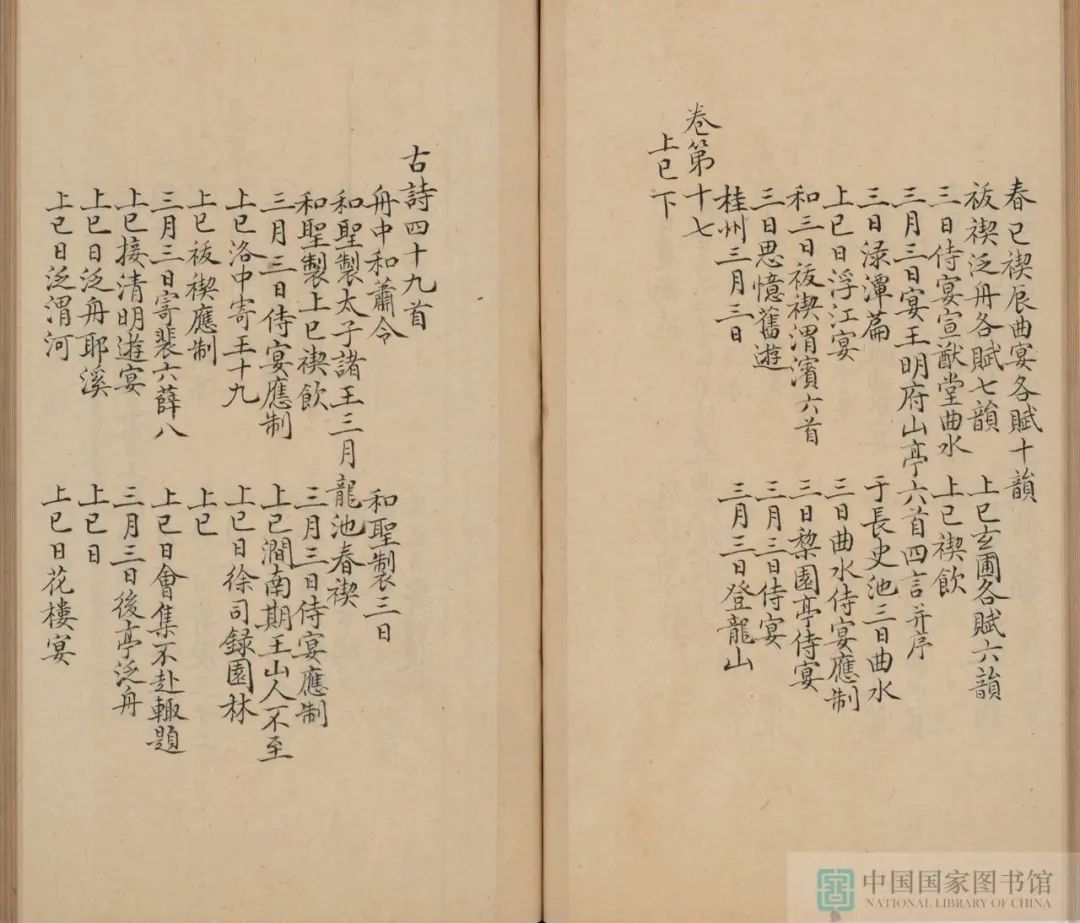 春已禊辰曲宴各賦十韻
祓禊泛舟各賦七韻 上巳玄圃各賦六韻
三日侍宴宣猷堂曲水 上巳禊飲
三月三日宴王明府山亭六首四言并序
三日淥潭篇 于長史池三日曲水
上巳日浮江宴 三日曲水侍宴應制
和三日祓禊渭濱六首 三日黎園亭侍宴
三日思憶舊遊 三月三日侍宴
桂州三月三日 三月三日登龍山
卷第十七
上巳下
古詩四十九首
舟中和蕭令 和聖製三日
和聖製太子諸王三月龍池春禊
和聖製上巳禊飲 三月三日侍宴應制
三月三日侍宴應制 上巳澗南期王山人不至
上巳洛中寄王十九 上巳日徐司録園林
上巳祓禊應制 上巳
三月三日寄裴六薛八 上巳日會集不赴輙題
上巳接清明遊宴 三月三日後亭泛舟
上巳日泛舟耶溪 上巳日
上巳日泛渭河 上巳日花樓宴
中国国家图书馆
NATIONAL LIBRARY OF CHINA